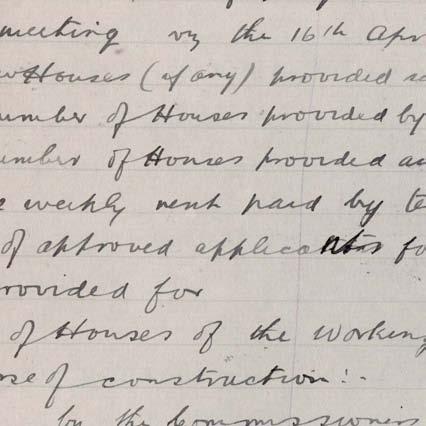 meeting viz the 16th Apr
w Houses (if any) provided
umber of Houses provided by
umber of Houses provided
weekly rent paid by te
of approved applicants fo
rovided for
of Houses of the working
rse of construction:-
by the Commissioners